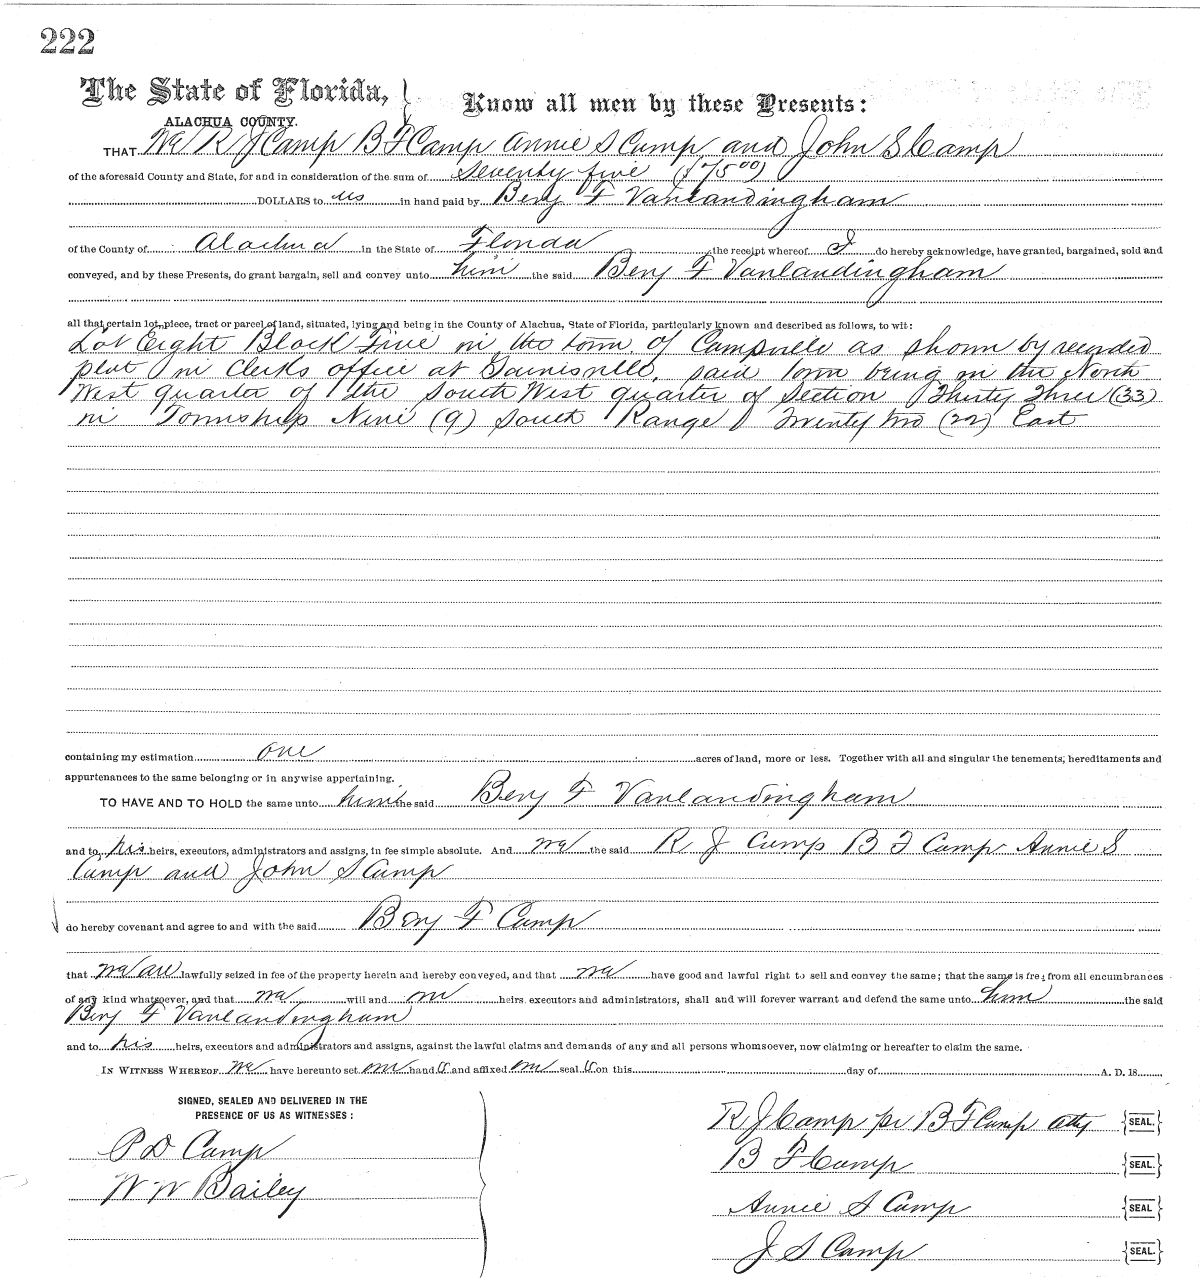 222
The State of Florida, } Know all men by these Presents:
ALACHUA COUNTY.
THAT We R J Camp B F Camp Annie S Camp and John S Camp
of the aforesaid County and State, for and in consideration of the sum of Seventy five ($75 00)
DOLLARS to us in hand paid by Benj F Vanlandingham
of the County of Alachua in the State of Florida the receipt whereof I do hereby acknowledge, have granted, bargained, sold and
conveyed, and by these Presents, do grant bargain, sell and convey unto him the said Benj F Vanlandingham
all that certain lot, piece, tract or parcel of land, situated, lying and being in the County of Alachua, State of Florida, particularly known and described as follows, to wit:
Lot Eight Block Five in the town of Campville as shown by recorded
plat in Clerks office at Gainesville, said town being in the North
West quarter of the South West quarter of Section Thirty Three (33)
in Township Nine (9) South Range Twenty two (22) East
containing my estimation one acres of land, more or less. Together with all and singular the tenements, hereditaments and
appurtenances to the same belonging or in anywise appertaining.
TO HAVE AND TO HOLD the same unto him the said Benj F Vanlandingham
and to his heirs, executors, administrators and assigns, in fee simple absolute. And we the said R J Camp B F Camp Annie S
Camp and John S Camp
do hereby covenant and agree to and with the said Benj F Camp
that we are lawfully seized in fee of the property herein and hereby conveyed, and that we have good and lawful right to sell and convey the same; that the same is free from all encumbrances
of any kind whatsoever, and that we will and our heirs, executors and administrators, shall and will forever warrant and defend the same unto him the said
Benj F Vanlandingham
and to his heirs, executors and administrators and assigns, against the lawful claims and demands of any and all persons whomsoever, now claiming or hereafter to claim the same.
IN WITNESS WHEREOF We have hereunto set our hands and affixed our seals on this day of A. D. 18
SIGNED, SEALED AND DELIVERED IN THE
PRESENCE OF US AS WITNESSES:
R J Camp pr B F Camp atty {SEAL.}
P D Camp
B F Camp {SEAL.}
W W Bailey
Annie S Camp {SEAL}
J S Camp {SEAL.}